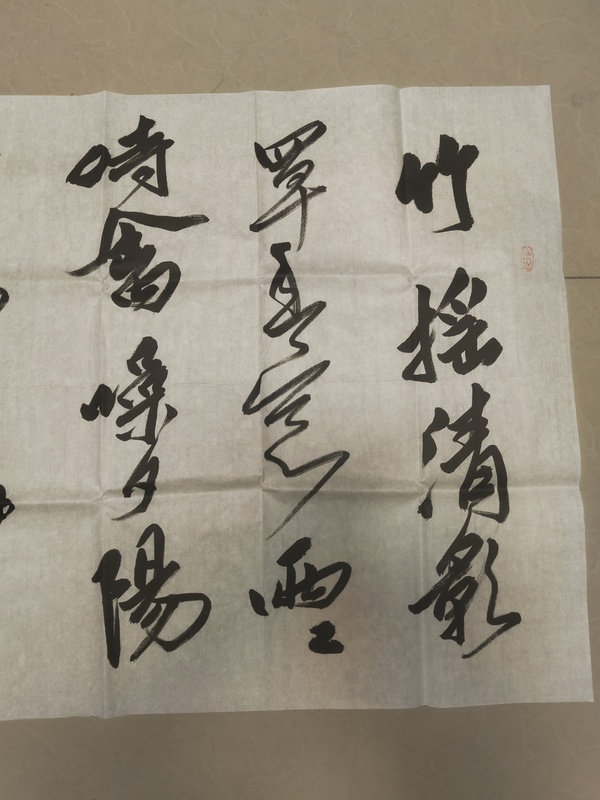 竹摇清影
罩幽窗兩々
時禽噪夕陽